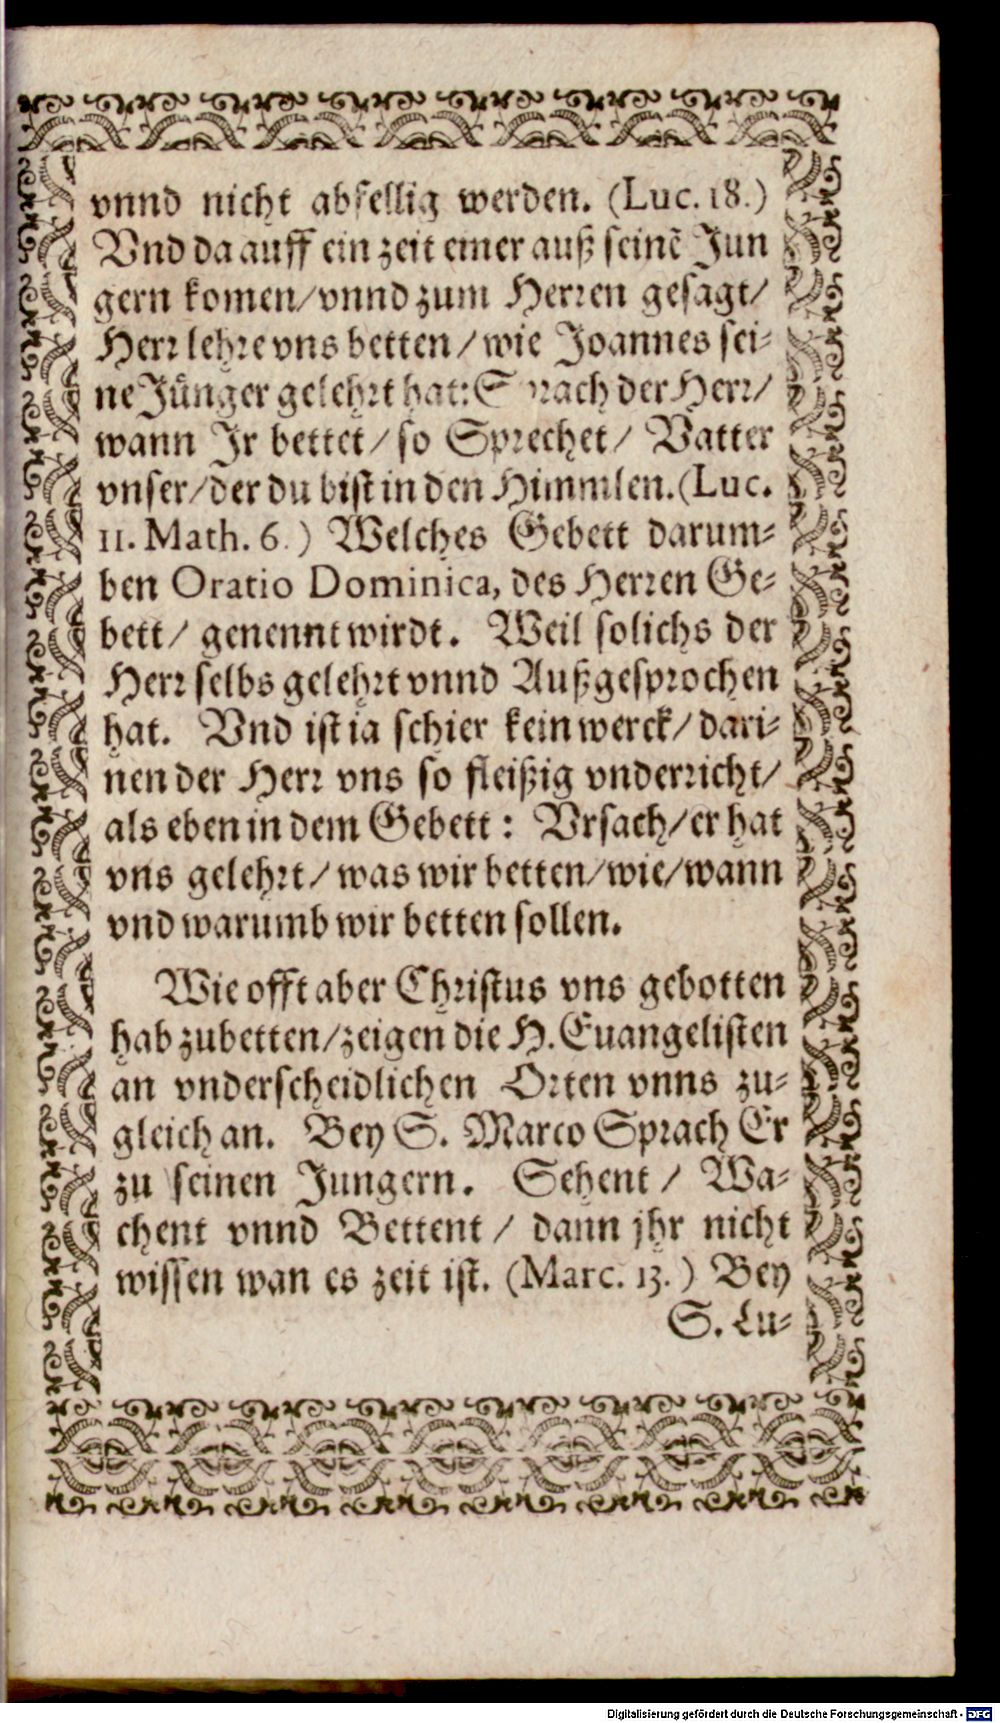 vnnd nicht abfellig werden. (Luc. 18.)
Vnd da auff ein zeit einer auß seinē Jun
gern komen/vnnd zum Herren gesagt/
Herr lehre vns betten/wie Joannes sei-
ne Jünger gelehrt hat: Sprach der Herr/
wann Ir bettet/so Sprechet/ Vatter
vnser/der du bist in den Himmlen. (Luc.
11. Math. 6.) Welches Gebett darum-
ben Oratio Dominica, des Herren Ge-
bett/ genennt wirdt. Weil solichs der
Herr selbs gelehrt vnnd Außgesprochen
hat. Vnd ist ia schier kein werck/ dari-
nen der Herr vns so fleißig vnderricht/
als eben in dem Gebett: Vrsach/er hat
vns gelehrt/was wir betten/wie/wann
vnd warumb wir betten sollen.
Wie offt aber Christus vns gebotten
hab zubetten/zeigen die H. Euangelisten
an vnderscheidlichen Orten vnns zu-
gleich an. Bey S. Marco Sprach Er
zu seinen Jungern. Sehent/ Wa-
chent vnnd Bettent/ dann jhr nicht
wissen wan es zeit ist. (Marc. 13.) Bey
S. Lu-
Digitalisierung gefördert durch die Deutsche Forschungsgemeinschaft - DFG